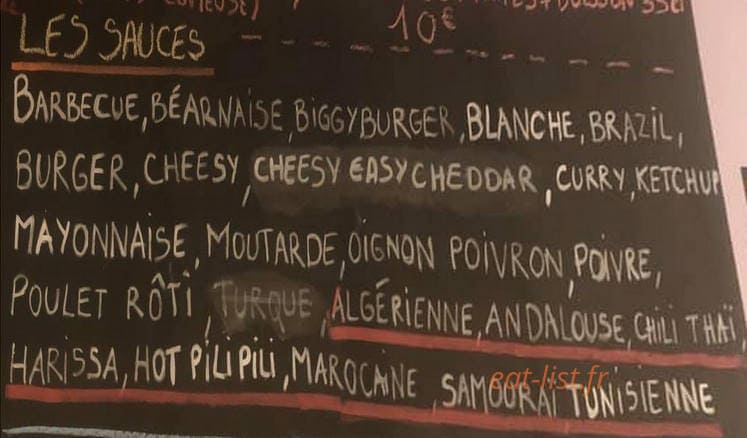 10€
LES SAUCES
BARBECUE, BÉARNAISE, BIGGYBURGER, BLANCHE, BRAZIL,
BURGER, CHEESY, CHEESY EASY CHEDDAR, CURRY, KETCHUP
MAYONNAISE, MOUTARDE, OIGNON POIVRON, POIVRE,
POULET RÔTI, TURQUE, ALGÉRIENNE, ANDALOUSE, CHILI THAÏ,
HARISSA, HOT PILI PILI, MAROCAINE, SAMOURAÏ TUNISIENNE
eat-list.fr